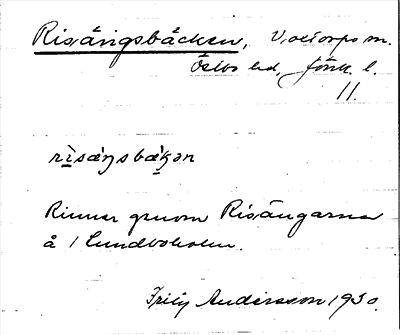 Risängsbäcken, Voxtorps sn.
Östbo hd, Jönk. l.
11.
rìsæŋsbækən
Rinner genom Risängarna
å 1 Lundboholm.
Frity Andersson 1930.